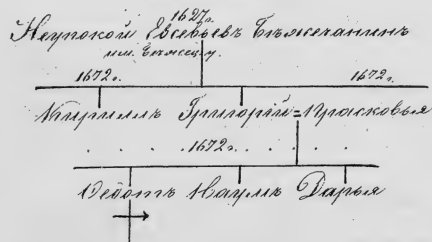 1627г.
Неупокой Евсевьевъ Бѣжечанинъ
1672г. 1672г.
Кириллъ Григорій=Прасковья
1672г.
Ѳедотъ Наумъ Дарья